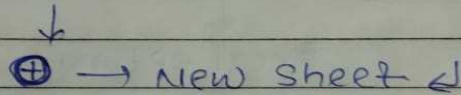 ↓
⊕ → New Sheet ↲